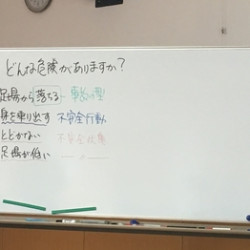 どんな危険がありますか？
足場から落ちる 事故の型
身を乗り出す 不安全行動
とどかない 不安全状態
足場が低い